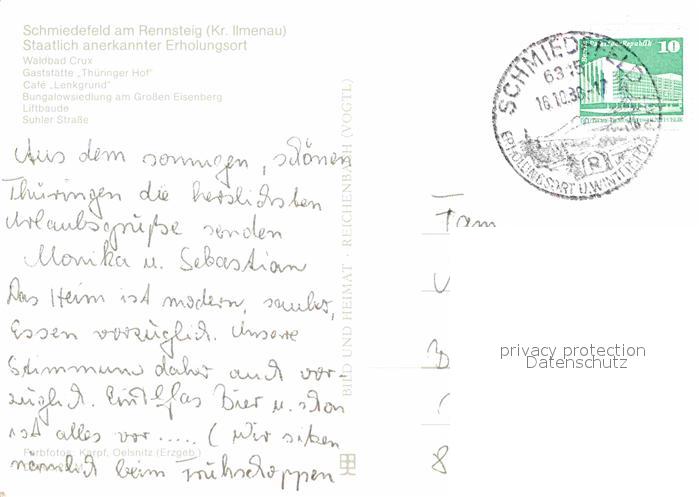 Schmiedefeld am Rennsteig (Kr. Ilmenau)
Staatlich anerkannter Erholungsort
Waldbad Crux
Gaststätte „Thüringer Hof"
Café „Lenkgrund"
Bungalowsiedlung am Großen Eisenberg
Liftbaude
Suhler Straße
Aus dem sonnigen, schönen
Thüringen die herzlichsten
Urlaubsgrüße senden
Monika u. Sebastian
Das Heim ist modern, sauber,
Essen vorzüglich. Unsere
Stimmung daher auch vor-
züglich. Ein Glas Bier u. schon
ist alles vor ..... ( Wir sitzen
nämlich beim Frühschoppen
Farbfotos: Karpf, Oelsnitz (Erzgeb.)
BILD UND HEIMAT · REICHENBACH (VOGTL)
10
SCHMIEDEFELD
16.10.
ERHOLUNGSORT U. WINTERSPORT
R
Fam
privacy protection
Datenschutz
8